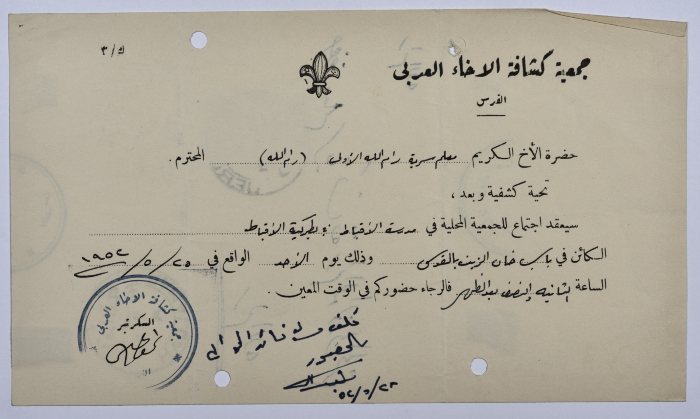 ك/٣
جمعية كشافة الاخاء العربي
القدس
حضرة الأخ الكريم معلم سرية رام الله الأولى (رام الله) المحترم.
تحية كشفية وبعد،
سيعقد اجتماع للجمعية المحلية في مدرسة الأقباط، بطركية الأقباط
الكائن في باب خان الزيت بالقدس وذلك يوم الأحد الواقع في ٢٥/٥/١٩٥٢
الساعة الثانية والنصف بعد الظهر فالرجاء حضوركم في الوقت المعين.
جمعية كشافة الاخاء العربي
السكرتير
كلف
بالحضور
٥٢/٥/٢٣